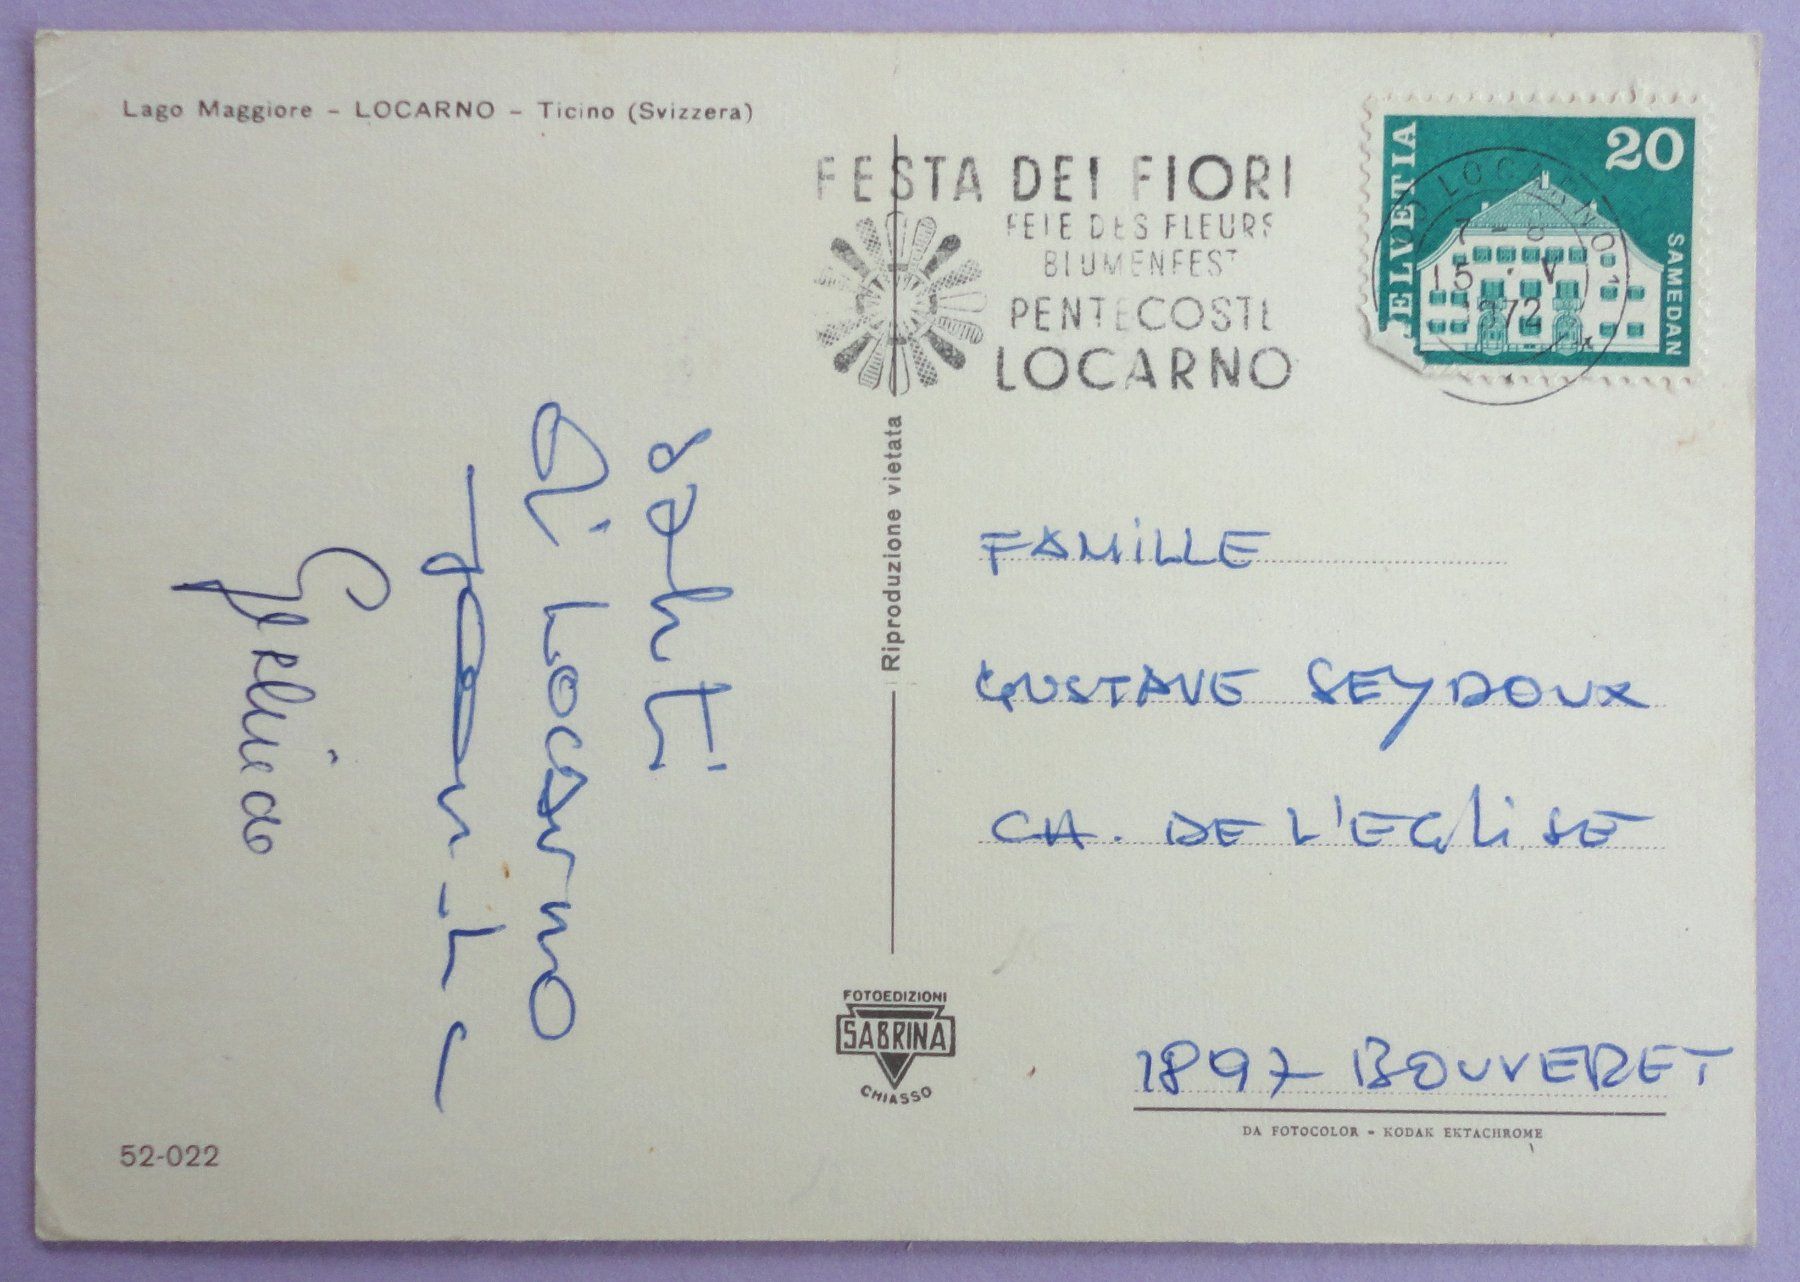 Lago Maggiore - LOCARNO - Ticino (Svizzera)
FESTA DEI FIORI
FETE DES FLEURS
BLUMENFEST
PENTECOSTE
LOCARNO
HELVETIA
20
SAMEDAN
LOCARNO 1
7-8
15.V
1972
Riproduzione vietata
saluti
di LOCARNO
FAMILLE
GUSTAVE SEYDOUX
CH. DE L'EGLISE
1897 BOUVERET
FOTOEDIZIONI
SABRINA
CHIASSO
DA FOTOCOLOR - KODAK EKTACHROME
52-022